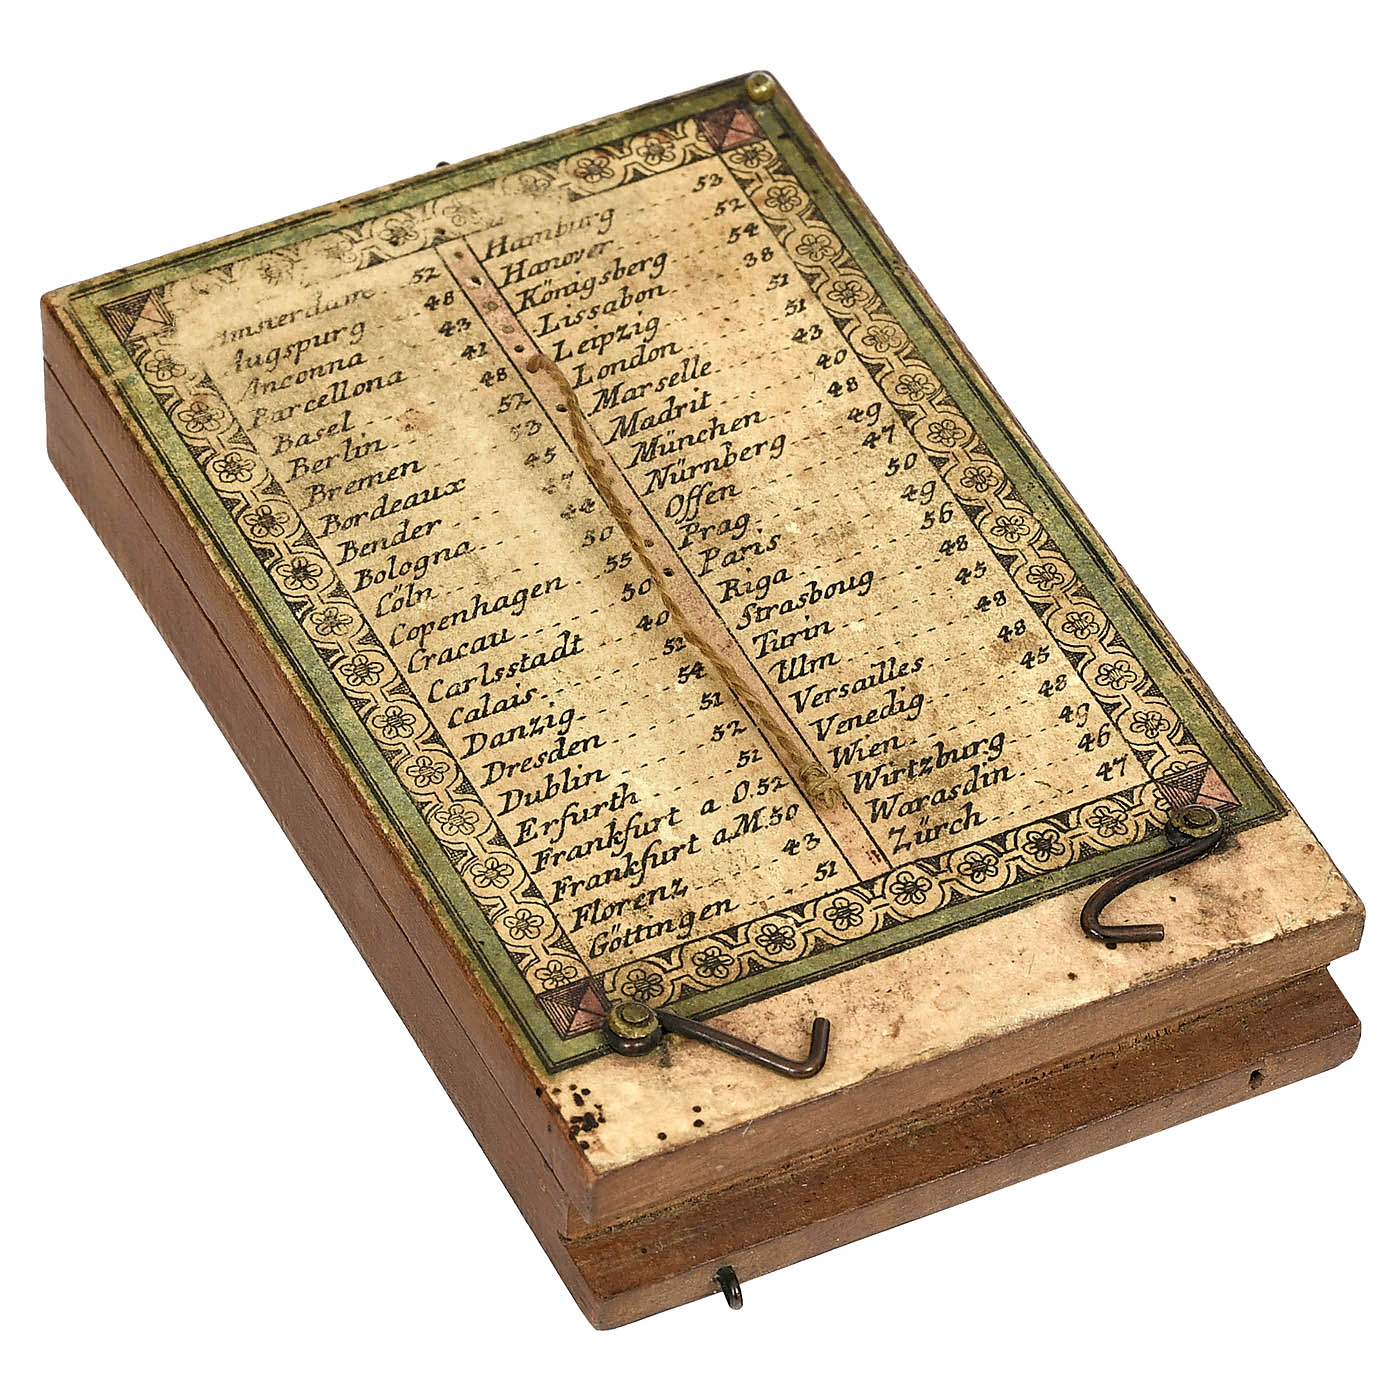 Amsterdam 52
Augspurg 48
Anconna 43
Barcellona 41
Basel 48
Berlin 52
Bremen 53
Bordeaux 45
Bender 47
Bologna 44
Cöln 50
Copenhagen 55
Cracau 50
Carlsstadt 40
Calais
Danzig 54
Dresden 51
Dublin 52
Erfurth 51
Frankfurt a O. 52
Frankfurt a.M. 50
Florenz 43
Göttingen 51
Hamburg 53
Hanover 52
Königsberg 54
Lissabon 38
Leipzig 51
London 51
Marselle 43
Madrit 40
München 48
Nürnberg 49
Offen 47
Prag 50
Paris 49
Riga 56
Strasboug 48
Turin 45
Ulm 48
Versailles 48
Venedig 45
Wien 48
Wirtzburg 49
Warasdin 46
Zürch 47